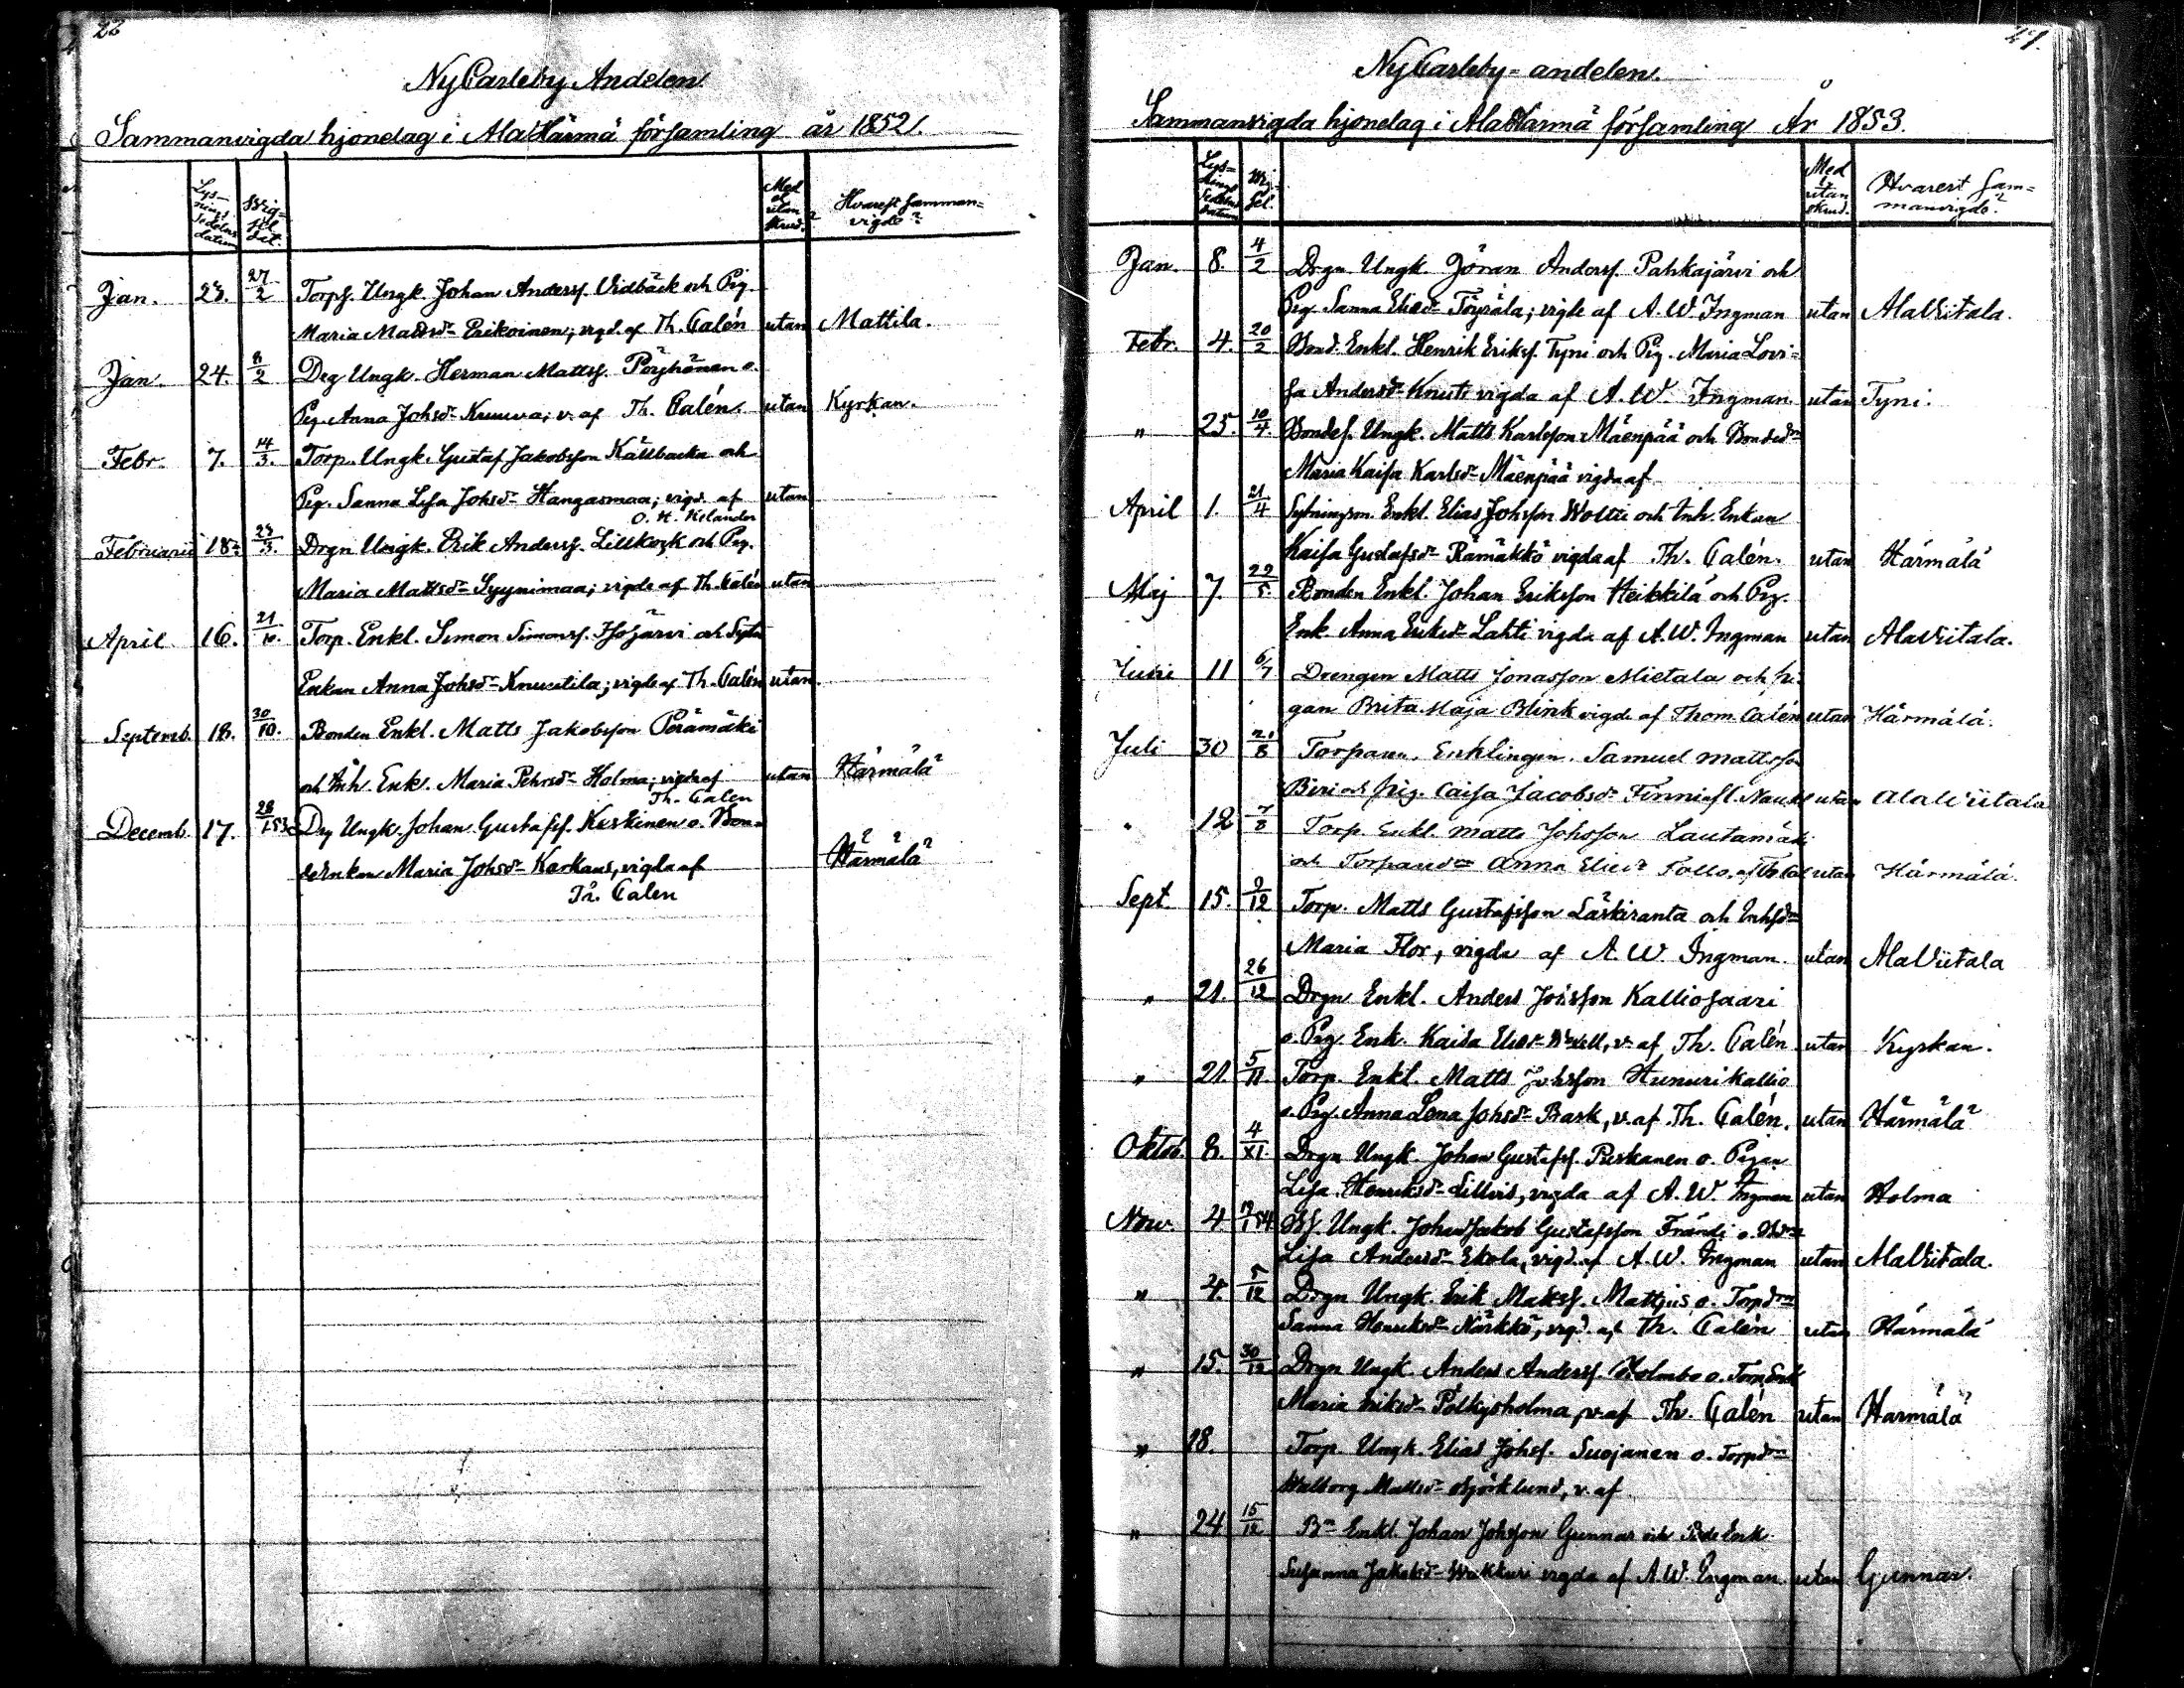 22
NyCarleby Andelen
Sammanvigda hjonelag i AlaHärmä församling år 1852.
Lysningssedelns datum
Vigsel dat.
Med el utan skrud.
Hvarest sammanvigde?
Jan. 23. 27/2 Torps. Ungk. Johan Anderss. Vidbäck och Pig.
Maria Mattsdr Erikoinen; vigd. af Th. Calén utan Mattila.
Jan. 24. 8/2 Dreg Ungk. Herman Mattss. Pöyhönen o.
Pig. Anna Johsdr Kuuva; v. af Th. Calén. utan Kyrkan.
Febr. 7. 14/3. Torp. Ungk. Gustaf Jakobsson Källbacka och
Pig. Sanna Lisa Johsdr Hangasmaa; vigd. af utan
O. H. Helander
Februarii 18. 23/3. Drgn Ungk. Erik Anderss. Lillkock och Pig.
Maria Mattsdr Syynimaa; vigde af Th. Calén utan
April 16. 21/10. Torp. Enkl. Simon Simonss. Isojärvi och
Enkan Anna Johsdr Knuutila; vigde af Th. Calén utan.
Septemb. 18. 30/10. Bonden Enkl. Matts Jakobsson Perämäki
och Inh. Enk. Maria Pehrsdr Holma; vigda af utan Härmälä
Th. Calen
Decemb. 17. 28/1 53 Drg Ungk. Johan Gustafss. Keskinen o. Bon-
deEnkan Maria Johsdr Karhaus, vigda af Härmälä
Th. Calen
47.
NyCarleby-andelen.
Sammanvigda hjonelag i AlaHärmä församling År 1853.
Lysningssedelns datum
Vigsel.
Med l. utan skrud.
Hvarest sammanvigde?
Jan. 8. 4/2 Drgn Ungk Jöran Anderss. Pahkajärvi och
Pig. Sanna Eliedr Töyrälä; vigde af A. W. Ingman utan AlaViitala.
Febr. 4. 20/2 Bond. Enkl. Henrik Erikss. Tyni och Pig. Maria Lovi-
sa Andersdr Knuts vigda af A. W. Ingman utan Tyni.
" 25. 10/4. Bondes. Ungk. Matts Karlsson Mäenpää och Bondedr
Maria Kaisa Karlsdr Mäenpää vigda af
April 1. 21/4 Sytningsm. Enkl. Elias Johsson Woltti och Inh. Enkan
Kaisa Gustafsdr Rämäkkö vigda af Th. Calén. utan Härmälä
Maj 7. 22/5. Bonden Enkl. Johan Eriksson Heikkilä och Pig.
Enk. Anna Eriksdr Lahti vigda af A. W. Ingman utan AlaViitala.
Juni 11 6/7 Drengen Matts Jonasson Mietala och Pi-
gan Brita Maja Blink vigd. af Thom. Calén utan Härmälä.
Juli 30 21/8 Torparen. Enklingen. Samuel Mattsson
Biri och Pig. Caisa Jacobsdr Finni utan AlaWiitala
" 12 7/8 Torp. Enkl. Matts Johsson Lautamäki
och Torparedr Anna Eliedr Follo, af Th Cal utan Härmälä.
Sept. 15. 9/12 Torp. Matts Gustafsson Särkiranta och Inhsdr
Maria Flor, vigda af A. W. Ingman. utan AlaViitala
" 21. 26/12 Drgn Enkl. Anders Johsson Kalliosaari
o. Pig. Enk. Kaisa Eliedr v. af Th. Calén utan Kyrkan.
" 21. 5/11. Torp. Enkl. Matts Johsson Hunurikallio
o. Pig. Anna Lena Johsdr Bask, v. af Th. Calén. utan Härmälä
Oktob. 8. 4/XI. Drgn Ungk. Johan Gustafss. Puskanen o. Pigan
Lisa Henriksdr Lillvis, vigda af A. W. Ingman utan Holma
Nov. 4 19/1 54 Bs Ungk. Johan Jakob Gustafsson Frändi o. Bdr
Lisa Andersdr Ekola, vigd. af A. W. Ingman utan AlaViitala.
" 4. 5/12 Drgn Ungk. Erik Mattss. Mattjus o. Torpdr
Sanna Henriksdr Närkkö, vigd. af Th. Calén utan Härmälä
" 15. 30/12 Drgn Ungk. Anders Anderss. Holmbo o. TorpEnk
Maria Eriksdr Pölkyoholma, v. af Th. Calén utan Härmälä
" 18 Torp Ungk. Elias Johss. Suojanen o. Torpdr
Walborg Mattsdr Björklund, v. af
" 24 15/12 Bn Enkl. Johan Johsson Gunnar och BdeEnk.
Susanna Jakobsdr Wakkuri vigda af A. W. Engman. utan Gunnar.